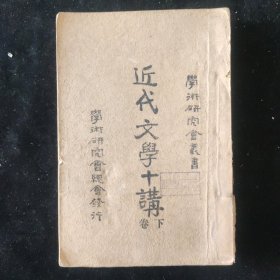 學術研究會叢書
近代文學十講
卷下
學術研究會總會發行